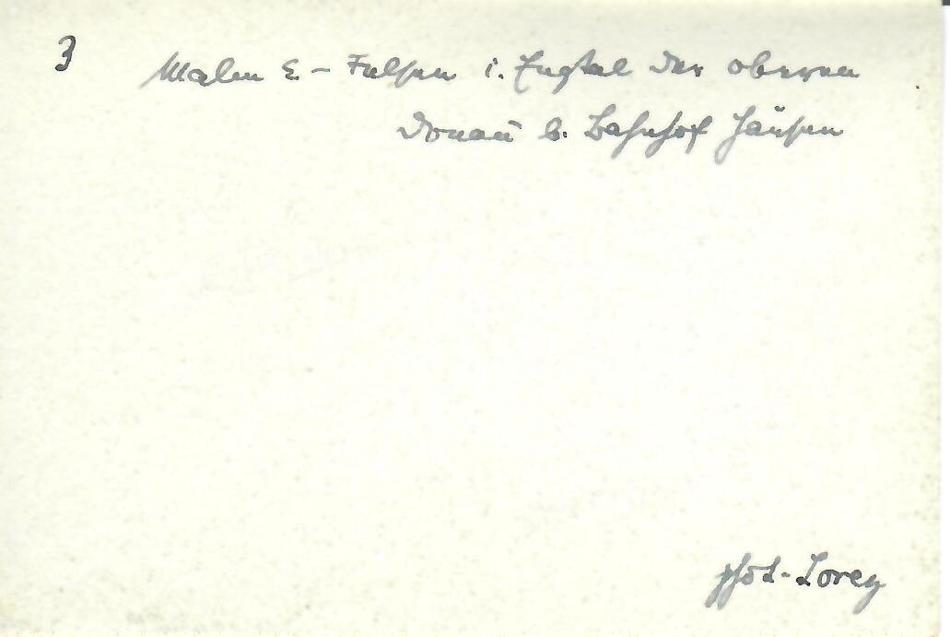 3
Malm ε - Felsen i. Engtal der oberen
Donau b. Bahnhof Hausen
phot. Lorey